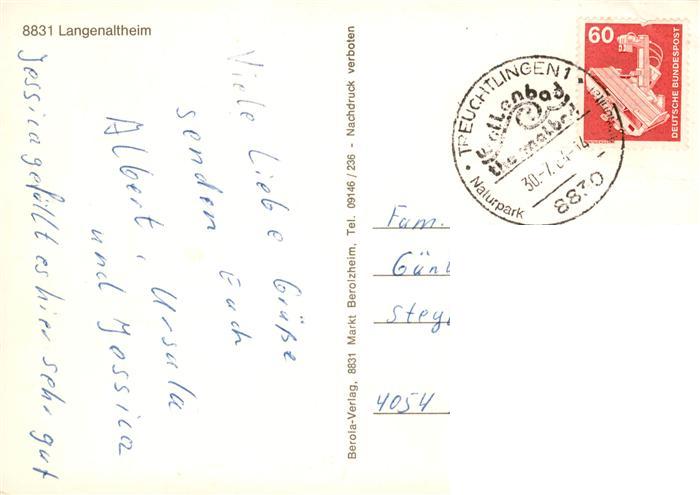 8831 Langenaltheim
Viele Liebe Grüße
senden Euch
Albert, Ursula
und Jessica
Jessica gefällt es hier sehr gut
Berola-Verlag, 8831 Markt Berolzheim, Tel. 09146/236 - Nachdruck verboten
TREUCHTLINGEN 1
Wellenbad
Thermalbad
Naturpark
8830
60
DEUTSCHE BUNDESPOST
Fam.
Gün
Steg
4054